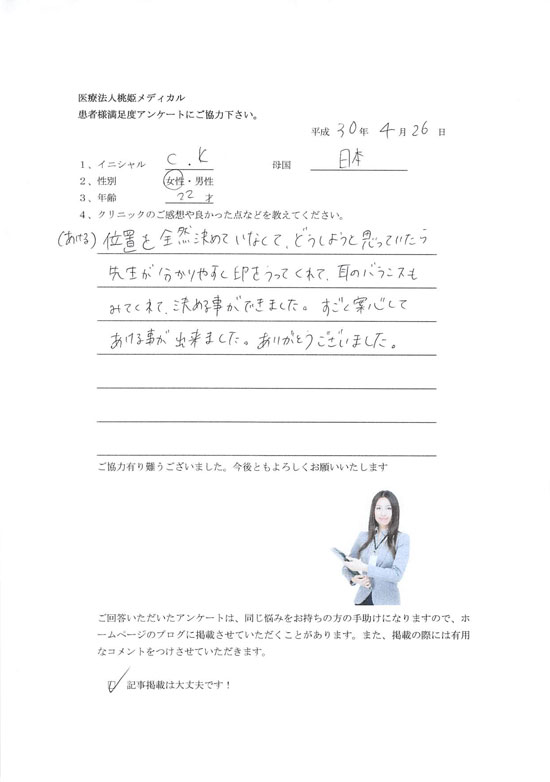 医療法人桃姫メディカル
患者様満足度アンケートにご協力下さい。
平成 30年 4月 26日
1、イニシャル C.K 母国 日本
2、性別 女性・男性
3、年齢 22才
4、クリニックのご感想や良かった点などを教えてください。
(あける) 位置を全然決めていなくて、どうしようと思っていたら
先生が分かりやすく印をうってくれて、耳のバランスも
みてくれて、決める事ができました。すごく安心して
あける事が出来ました。ありがとうございました。
ご協力有り難うございました。今後ともよろしくお願いいたします
ご回答いただいたアンケートは、同じ悩みをお持ちの方の手助けになりますので、ホ
ームページのブログに掲載させていただくことがあります。また、掲載の際には有用
なコメントをつけさせていただきます。
☑ 記事掲載は大丈夫です！